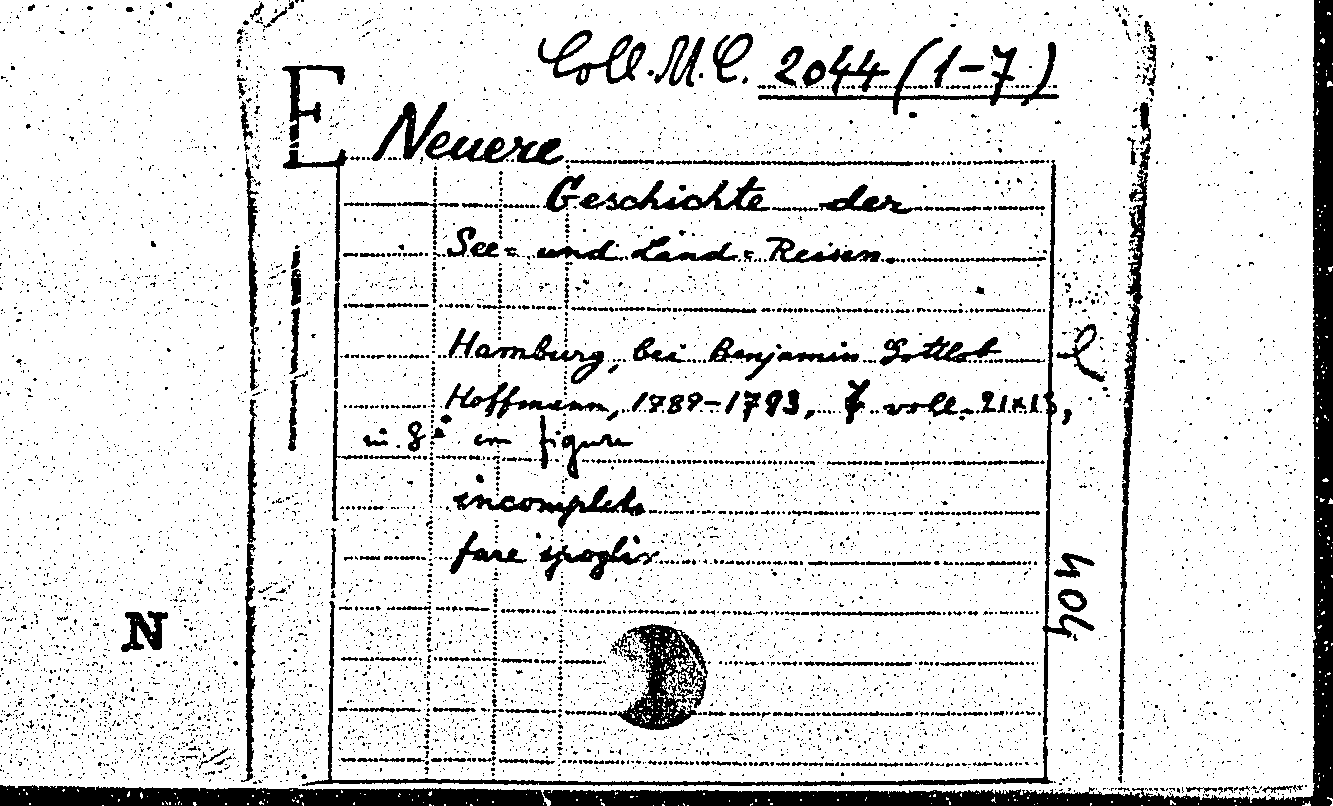 Coll. M. C. 2044 (1-7)
E
Neuere
Geschichte der
See= und Land=Reisen.
Hamburg, bei Benjamin Gottlob
Hoffmann, 1789-1793, 7 voll. 21x13,
in 8° con figure
incompleto
fare spoglio
404
N